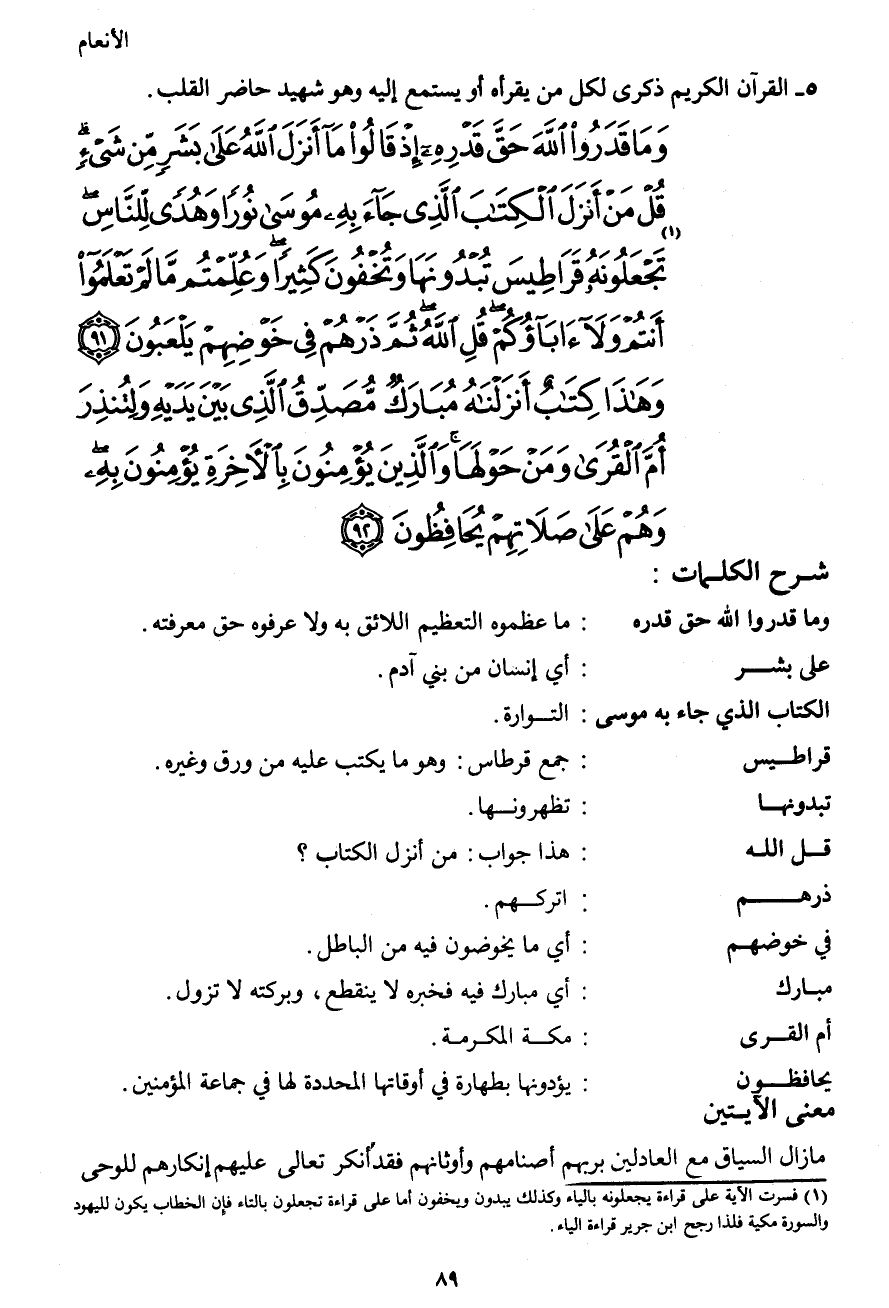 الأنعام
٥ـ القرآن الكريم ذكرى لكل من يقرأه أو يستمع إليه وهو شهيد حاضر القلب .
وَمَا قَدَرُوا۟ ٱللَّهَ حَقَّ قَدْرِهِۦٓ إِذْ قَالُوا۟ مَآ أَنزَلَ ٱللَّهُ عَلَىٰ بَشَرٍ مِّن شَىْءٍ ۗ
قُلْ مَنْ أَنزَلَ ٱلْكِتَٰبَ ٱلَّذِى جَآءَ بِهِۦ مُوسَىٰ نُورًا وَهُدًى لِّلنَّاسِ ۖ
تَجْعَلُونَهُۥ (١) قَرَاطِيسَ تُبْدُونَهَا وَتُخْفُونَ كَثِيرًا ۖ وَعُلِّمْتُم مَّا لَمْ تَعْلَمُوٓا۟
أَنتُمْ وَلَآ ءَابَآؤُكُمْ ۖ قُلِ ٱللَّهُ ۖ ثُمَّ ذَرْهُمْ فِى خَوْضِهِمْ يَلْعَبُونَ ﴿٩١﴾
وَهَٰذَا كِتَٰبٌ أَنزَلْنَٰهُ مُبَارَكٌ مُّصَدِّقُ ٱلَّذِى بَيْنَ يَدَيْهِ وَلِتُنذِرَ
أُمَّ ٱلْقُرَىٰ وَمَنْ حَوْلَهَا ۚ وَٱلَّذِينَ يُؤْمِنُونَ بِٱلْأَخِرَةِ يُؤْمِنُونَ بِهِۦ ۖ
وَهُمْ عَلَىٰ صَلَاتِهِمْ يُحَافِظُونَ ﴿٩٢﴾
شرح الكلمات :
وما قدروا الله حق قدره : ما عظموه التعظيم اللائق به ولا عرفوه حق معرفته .
على بشر : أي إنسان من بني آدم .
الكتاب الذي جاء به موسى : التوارة .
قراطيس : جمع قرطاس : وهو ما يكتب عليه من ورق وغيره .
تبدونها : تظهرونها .
قل الله : هذا جواب : من أنزل الكتاب ؟
ذرهم : اتركهم .
في خوضهم : أي ما يخوضون فيه من الباطل .
مبارك : أي مبارك فيه فخبره لا ينقطع ، وبركته لا تزول .
أم القرى : مكة المكرمة .
يحافظون : يؤدونها بطهارة في أوقاتها المحددة لها في جماعة المؤمنين .
معنى الآيتين
مازال السياق مع العادلين بربهم أصنامهم وأوثانهم فقد أنكر تعالى عليهم إنكارهم للوحى
(١) فسرت الآية على قراءة يجعلونه بالياء وكذلك يبدون ويخفون أما على قراءة تجعلون بالتاء فإن الخطاب يكون لليهود
والسورة مكية فلذا رجح ابن جرير قراءة الياء .
٨٩